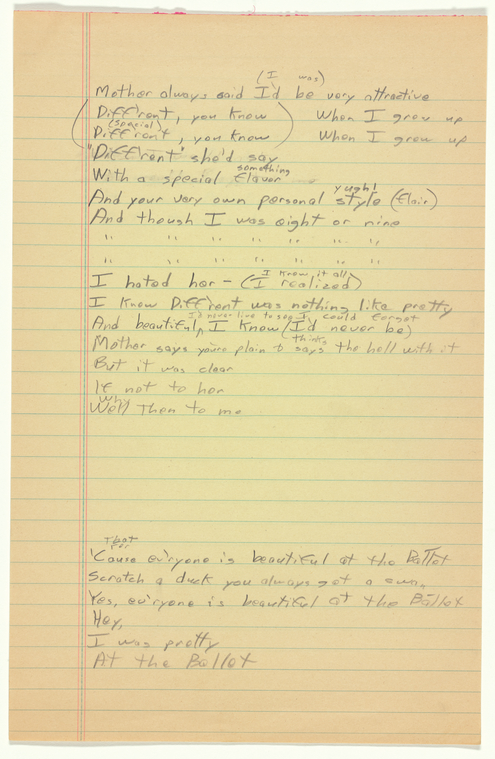 (I was)
Mother always said I'd be very attractive
Diff'rent, you know When I grew up
(special)
Diff'rent, you know When I grew up
"Diff'rent" she'd say
something
With a special flavor
yugh!
And your very own personal style (flair)
And though I was eight or nine
" " " " " " "
" " " " " " "
I knew it all
I hated her - (I realized)
I know Diff'rent was nothing like pretty
I'd never live to see I could forget
And beautiful, I knew (I'd never be)
thinks
Mother says you're plain & says the hell with it
But it was clear
If not to her
Why
Well Then to me
That
For
'Cause ev'ryone is beautiful at the Ballet
Scratch a duck you always get a swan
Yes, ev'ryone is beautiful at the Ballet
Hey,
I was pretty
At the Ballet